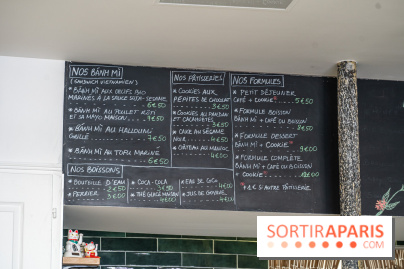 NOS BÁNH MÌ
(SANDWICH VIETNAMIEN)
* BÁNH MÌ AUX OEUFS BIO
MARINÉS À LA SAUCE SOJA-SESAME
6€50
* BÁNH MÌ AU POULET RÔTI
ET SA MAYO MAISON
7€50
* BÁNH MÌ AU HALLOUMI
GRILLÉ
7€50
* BÁNH MÌ AU TOFU MARINÉ
6€50
NOS PÂTISSERIES
* COOKIES AUX
PÉPITES DE CHOCOLAT
3€50
* COOKIES AU PANDAN
ET CACAHUÈTE
3€50
* CAKE AU SÉSAME
NOIR
4€00
* GÂTEAU AU MANIOC
4€00
NOS FORMULES
* PETIT DÉJEUNER
CAFÉ + COOKIE
5€50
* FORMULE BOISSON
BÁNH MÌ + CAFÉ OU BOISSON
9€50
* FORMULE DESSERT
BÁNH MÌ + COOKIE
9€00
* FORMULE COMPLÈTE
BÁNH MÌ + CAFÉ OU BOISSON
+ COOKIE
12€00
SI AUTRE PÂTISSERIE
NOS BOISSONS
* BOUTEILLE D'EAU
2€50
* PERRIER
3€00
* COCA-COLA
3€50
* THÉ GLACÉ MAISON
4€00
* EAU DE COCO
4€00
* JUS DE GOYAVE
4€00
SORTIRAPARIS
.COM